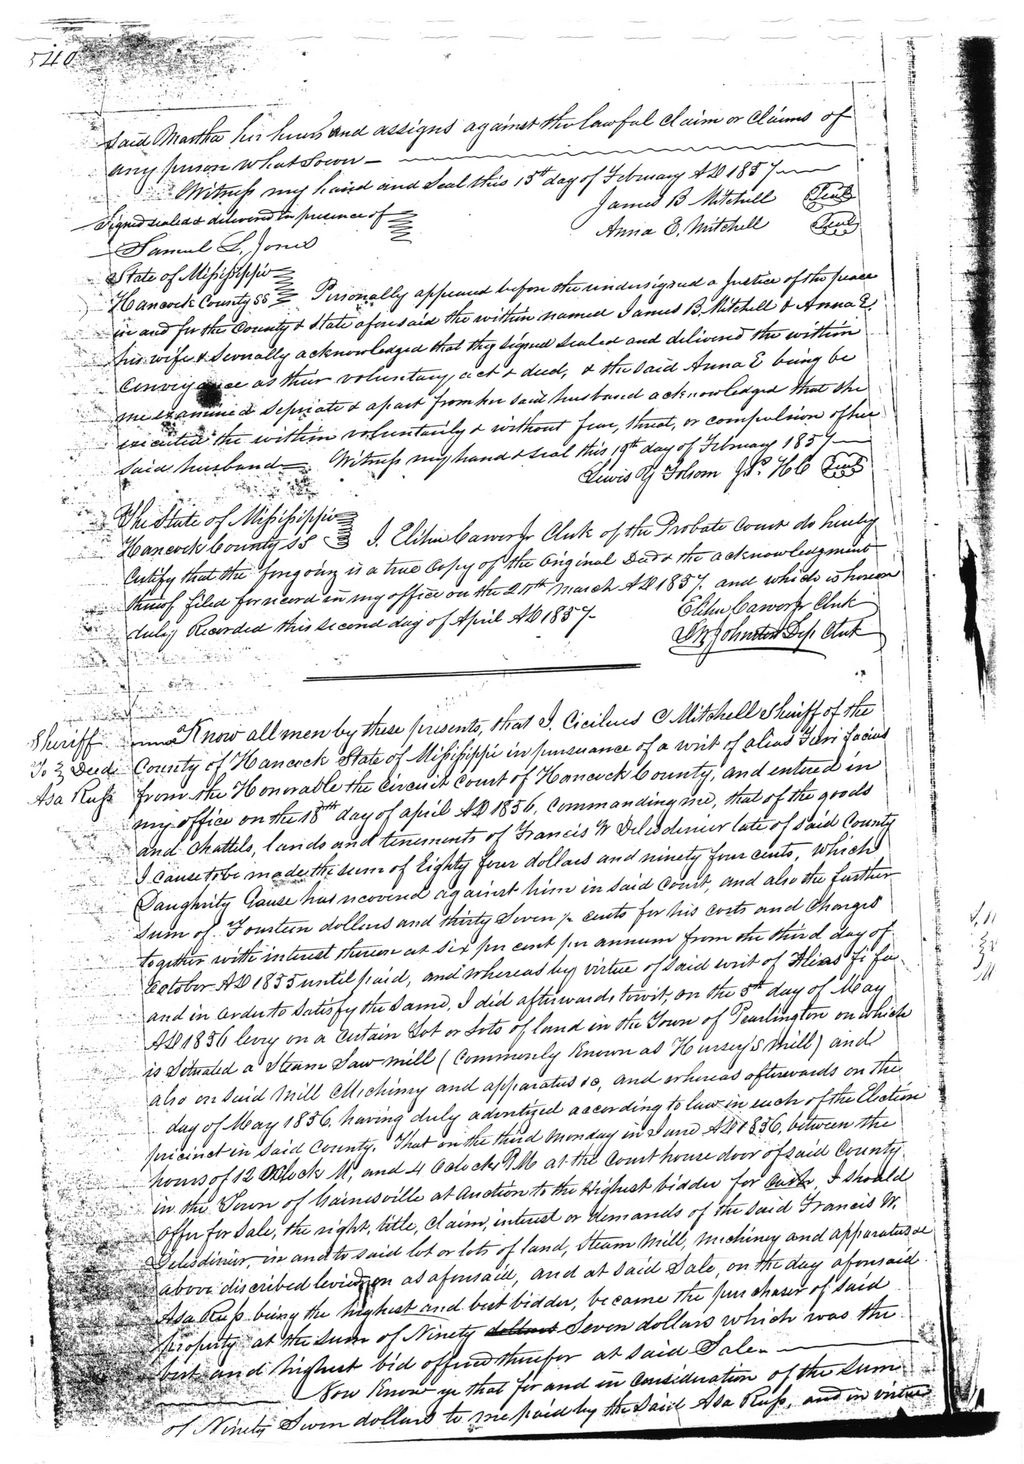 540
said Martha her heirs and assigns against the lawful claim or claims of
any person whatsoever —
Witness my hand and seal this 15th day of February AD 1857
James B Mitchell Seal
Signed sealed & delivered in presence of
Anna E. Mitchell Seal
Samuel L. Jones
State of Mississippi
Hancock County SS Personally appeared before the undersigned a Justice of the peace
in and for the County & State aforesaid the within named James B. Mitchell & Anna E.
his wife & severally acknowledged that they signed sealed and delivered the within
conveyance as their voluntary act & deed, & the said Anna E being by
me examined seperate & apart from her said husband acknowledged that she
executed the within voluntarily & without fear, threat, or compulsion of her
said husband — Witness my hand & seal this 19th day of February 1857
Lewis Folsom J.P. H C Seal
The State of Mississippi
Hancock County SS I, Elihu Carver Jr Clerk of the Probate Court do hereby
Certify that the foregoing is a true Copy of the original Deed & the acknowledgment
thereof filed for record in my office on the March AD 1857. and which is hereon
duly Recorded this second day of April AD 1857-
Elihu Carver Jr Clerk
Johnston Dep Clerk
Sheriff
To } Deed
Asa Russ
Know all men by these presents, that I. Cicilius C Mitchell Sheriff of the
County of Hancock State of Mississippi in pursuance of a writ of alias Fieri facias
from the Honorable the Circuit Court of Hancock County, and entered in
my office on the 18th day of april AD 1856, commanding me, that of the goods
and chattels, lands and tenements of Francis W Delesdenier late of said County
I cause to be made the sum of Eighty four dollars and ninety four cents, which
Daughrity Gause has recovered against him in said Court, and also the further
sum of Fourteen dollars and thirty Seven ½ cents for his costs and charges
together with interest thereon at six per cent per annum from the third day of
October AD 1855 until paid, and whereas by virtue of said writ of Alias fi fa
and in order to satisfy the same, I did afterwards, towit, on the 5th day of May
AD 1856 levy on a certain Lot or Lots of land in the Town of Pearlington on which
is situated a Steam Saw mill (Commonly Known as Hursey's mill) and
also on said Mill Michinery and apparatus &c, and whereas afterwards on the
day of May 1856, having duly advertized according to law in each of the Election
precinct in said County. That on the third Monday in June AD 1856, between the
hours of 12 Oclock M, and 4 Oclock P.M at the Court house door of said County
in the Town of Gainesville at auction to the Highest bidder for Cash, I should
offer for sale, the right, title, claim, interest or demands of the said Francis W.
Delesdinier, in and to said lot or lots of land, Steam Mill, Michinery and apparatus &c
above discribed levied on as aforesaid, and at said Sale, on the day aforesaid
Asa Russ being the highest and best bidder, became the purchaser of said
property at the sum of Ninety dollars Seven dollars which was the
best and highest bid offered therefor at said Sale.
Now Know ye that for and in consideration of the sum
of Ninety Seven dollars to me paid by the said Asa Russ, and in virtue